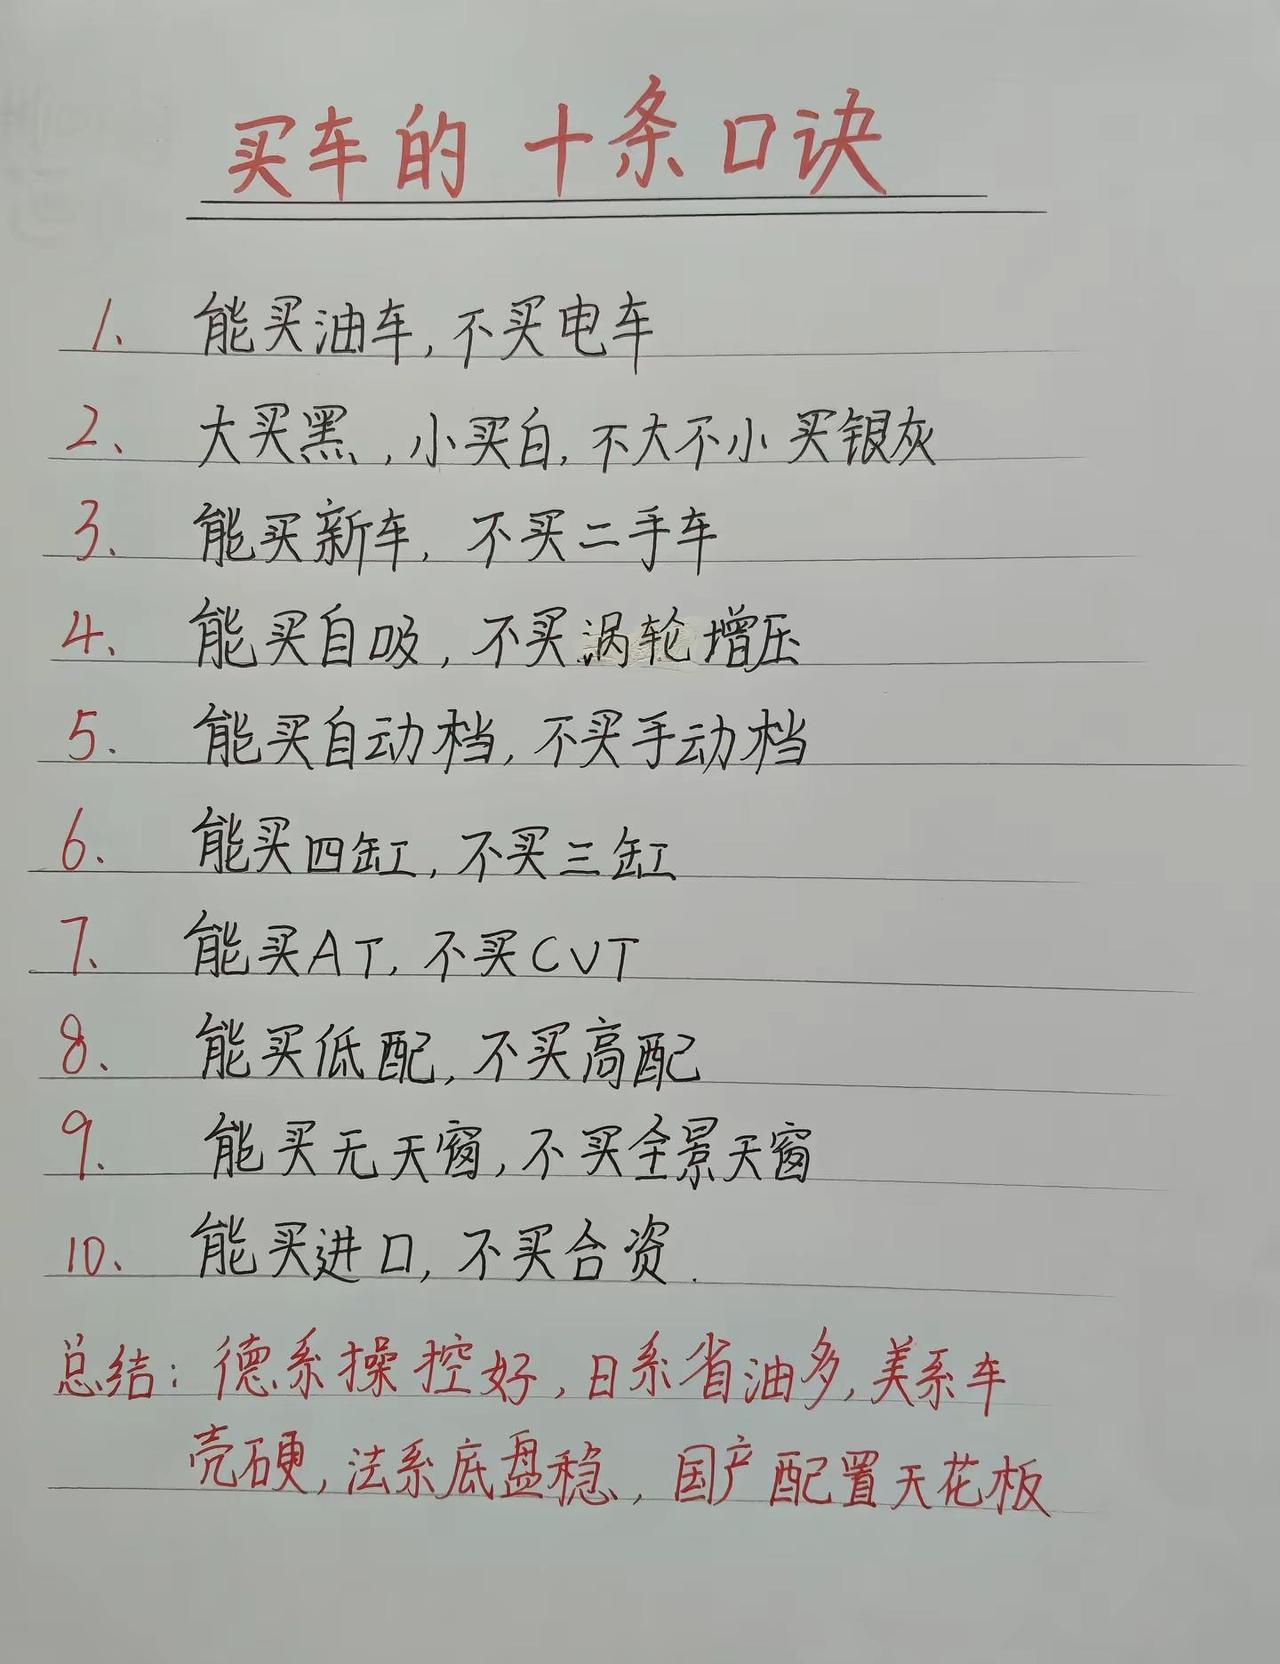 买车的 十条口诀
1、 能买油车,不买电车
2、 大买黑,小买白,不大不小买银灰
3、 能买新车, 不买二手车
4、 能买自吸, 不买涡轮增压
5、 能买自动档,不买手动档
6、 能买四缸,不买三缸
7、 能买AT,不买CVT
8、 能买低配,不买高配
9、 能买无天窗,不买全景天窗
10、 能买进口,不买合资.
总结:德系操控好,日系省油多,美系车
壳硬,法系底盘稳,国产配置天花板